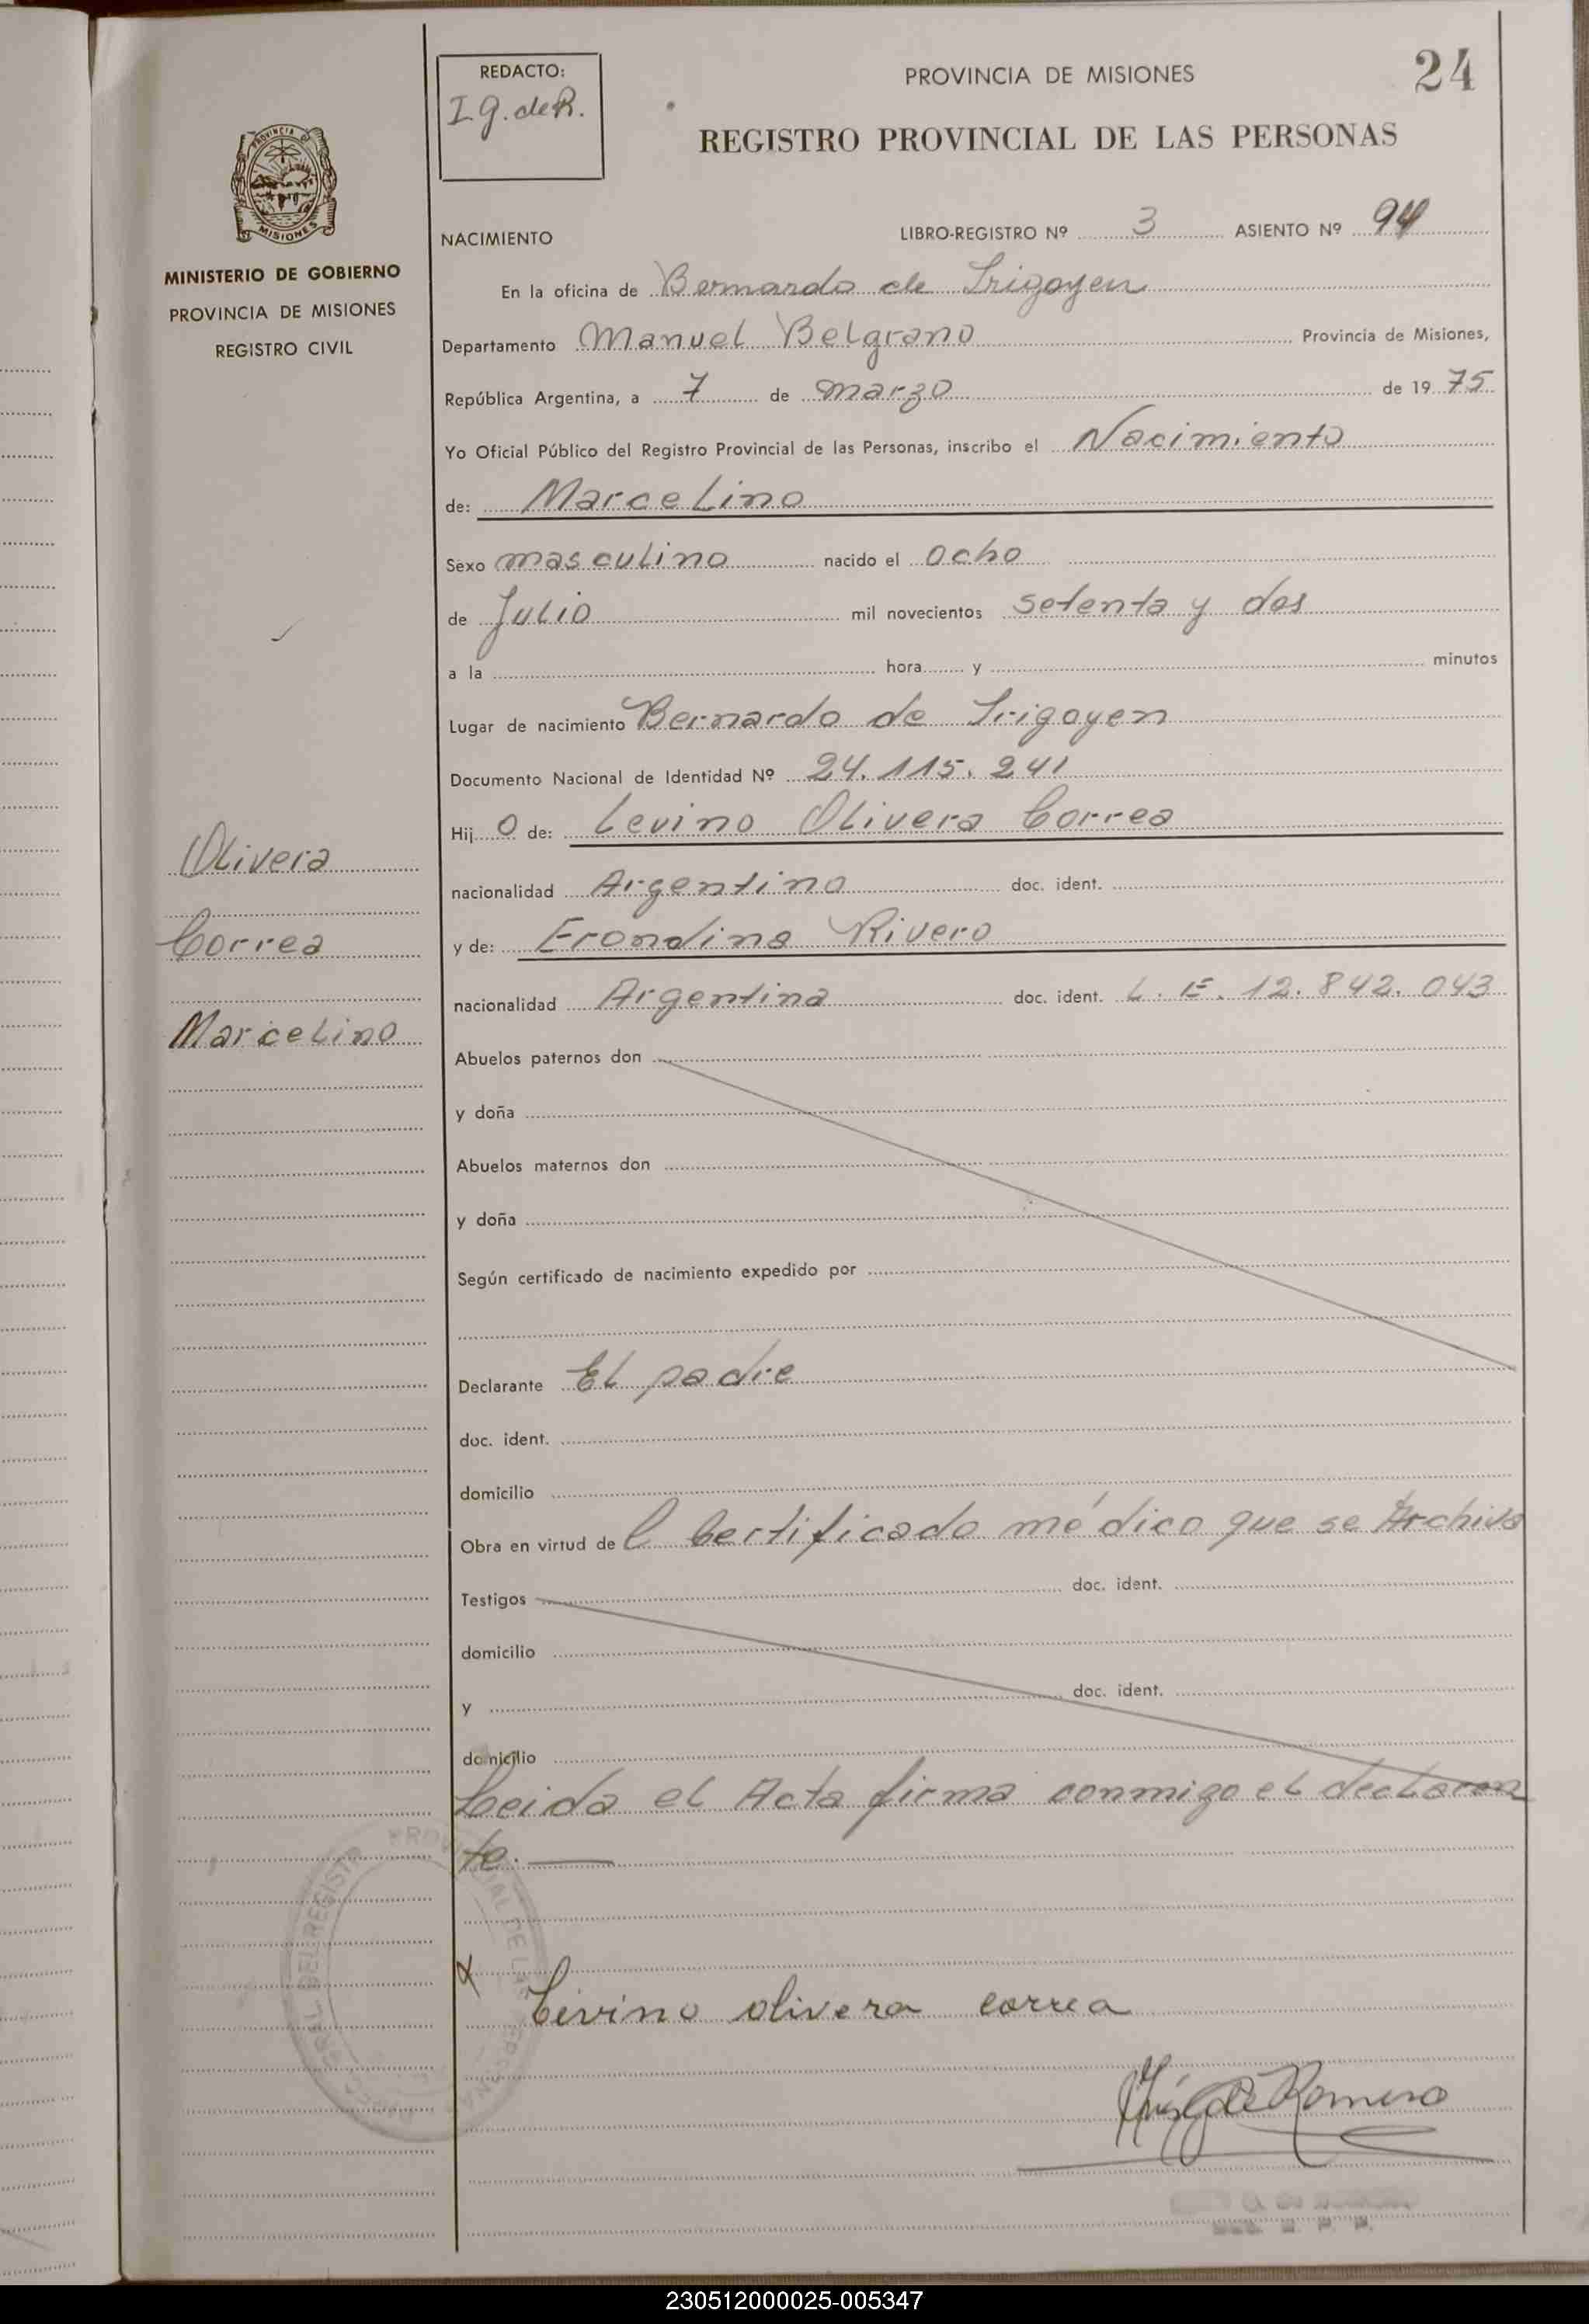 REDACTO:
I.g. de R.
PROVINCIA DE MISIONES
24
REGISTRO PROVINCIAL DE LAS PERSONAS
PROVINCIA D
MISIONES
MINISTERIO DE GOBIERNO
PROVINCIA DE MISIONES
REGISTRO CIVIL
NACIMIENTO
LIBRO-REGISTRO Nº 3 ASIENTO Nº 94
En la oficina de Bernardo de Irigoyen
Departamento Manuel Belgrano Provincia de Misiones,
República Argentina, a 7 de marzo de 1975
Yo Oficial Público del Registro Provincial de las Personas, inscribo el Nacimiento
de: Marcelino
Sexo masculino nacido el ocho
de Julio mil novecientos setenta y dos
a la hora y minutos
Lugar de nacimiento Bernardo de Irigoyen
Documento Nacional de Identidad Nº 24.115.241
Hijo de: Levino Olivera Correa
Olivera
nacionalidad Argentino doc. ident.
Correa
y de: Erondina Rivero
nacionalidad Argentina doc. ident. L. E. 12.842.043
Marcelino
Abuelos paternos don
y doña
Abuelos maternos don
y doña
Según certificado de nacimiento expedido por
Declarante El padre
doc. ident.
domicilio
Obra en virtud del Certificado médico que se Archiva
Testigos doc. ident.
domicilio
y doc. ident.
domicilio
Leida el Acta firma conmigo el declaran
te.
Livino olivera correa
de Romero
230512000025-005347